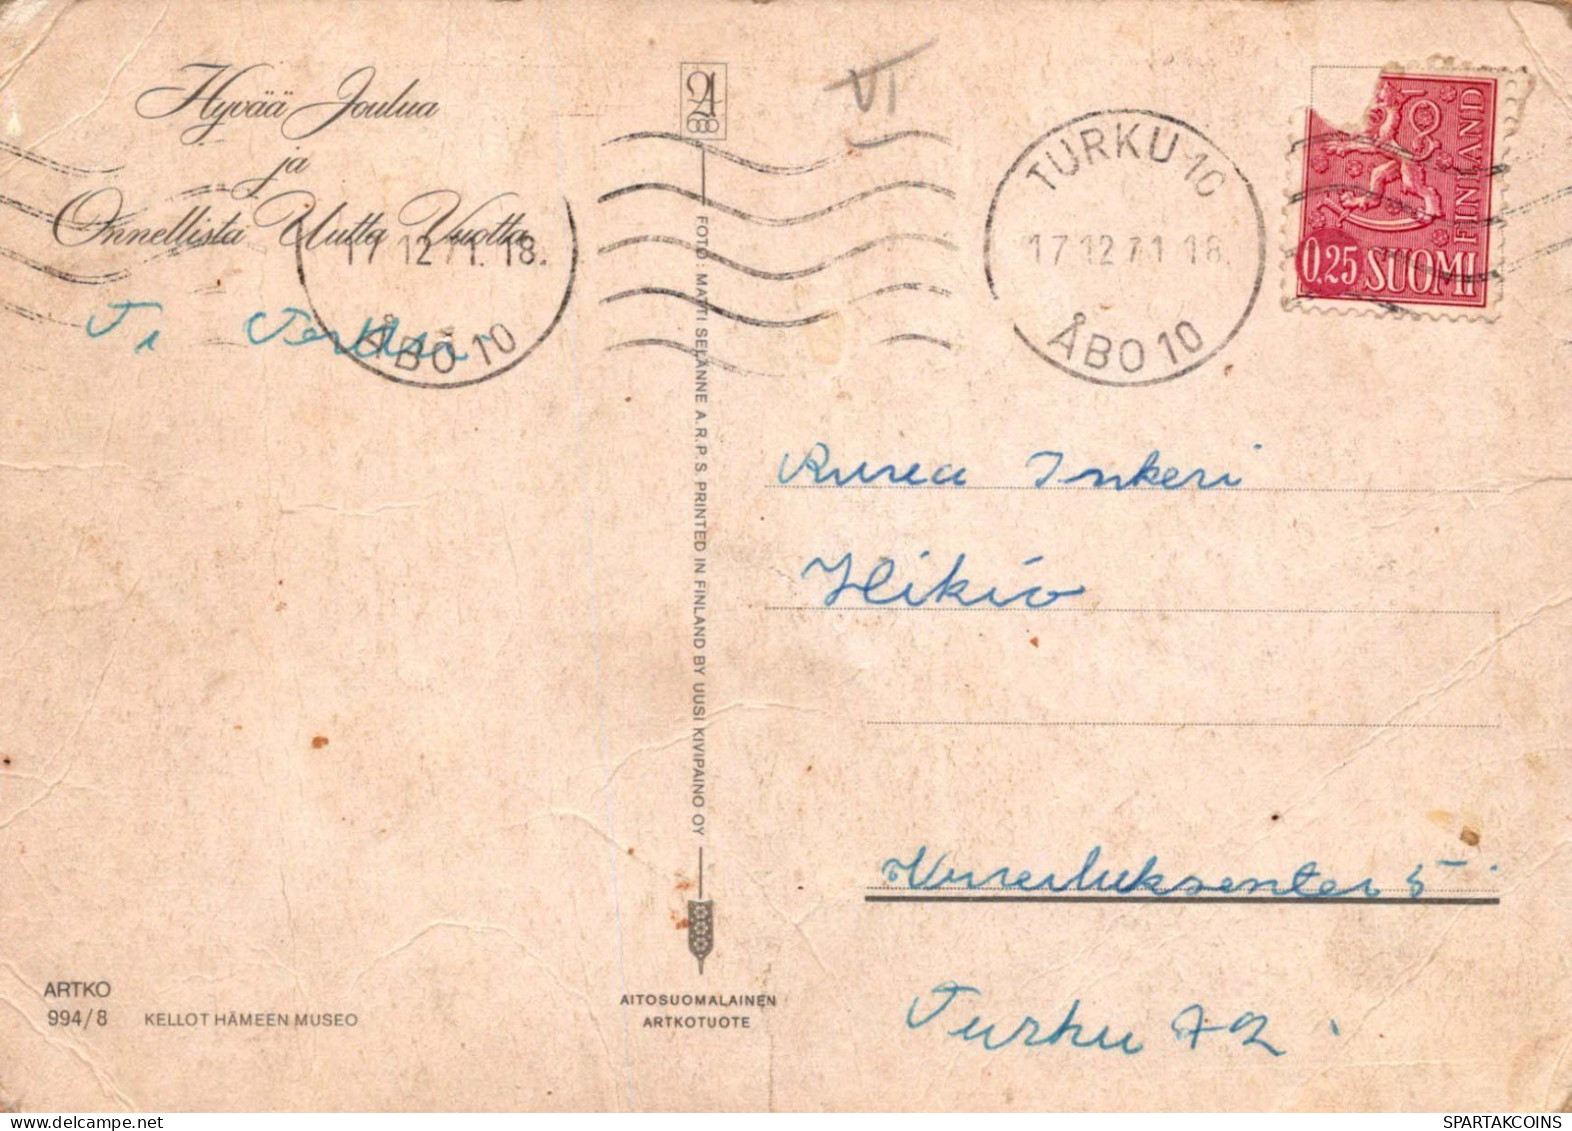 Hyvää Joulua
ja
Onnellista Uutta Vuotta
17 12 71. 18.
ÅBO 10
VI
TURKU 10
17 12 71 18
ÅBO 10
FINLAND
0.25 SUOMI
FOTO: MATTI SELÄNNE A.R.P.S. PRINTED IN FINLAND BY UUSI KIVIPAINO OY
Inkeri
Turku 72
ARTKO
994/8 KELLOT HÄMEEN MUSEO
AITOSUOMALAINEN
ARTKOTUOTE
SPARTAKCOINS